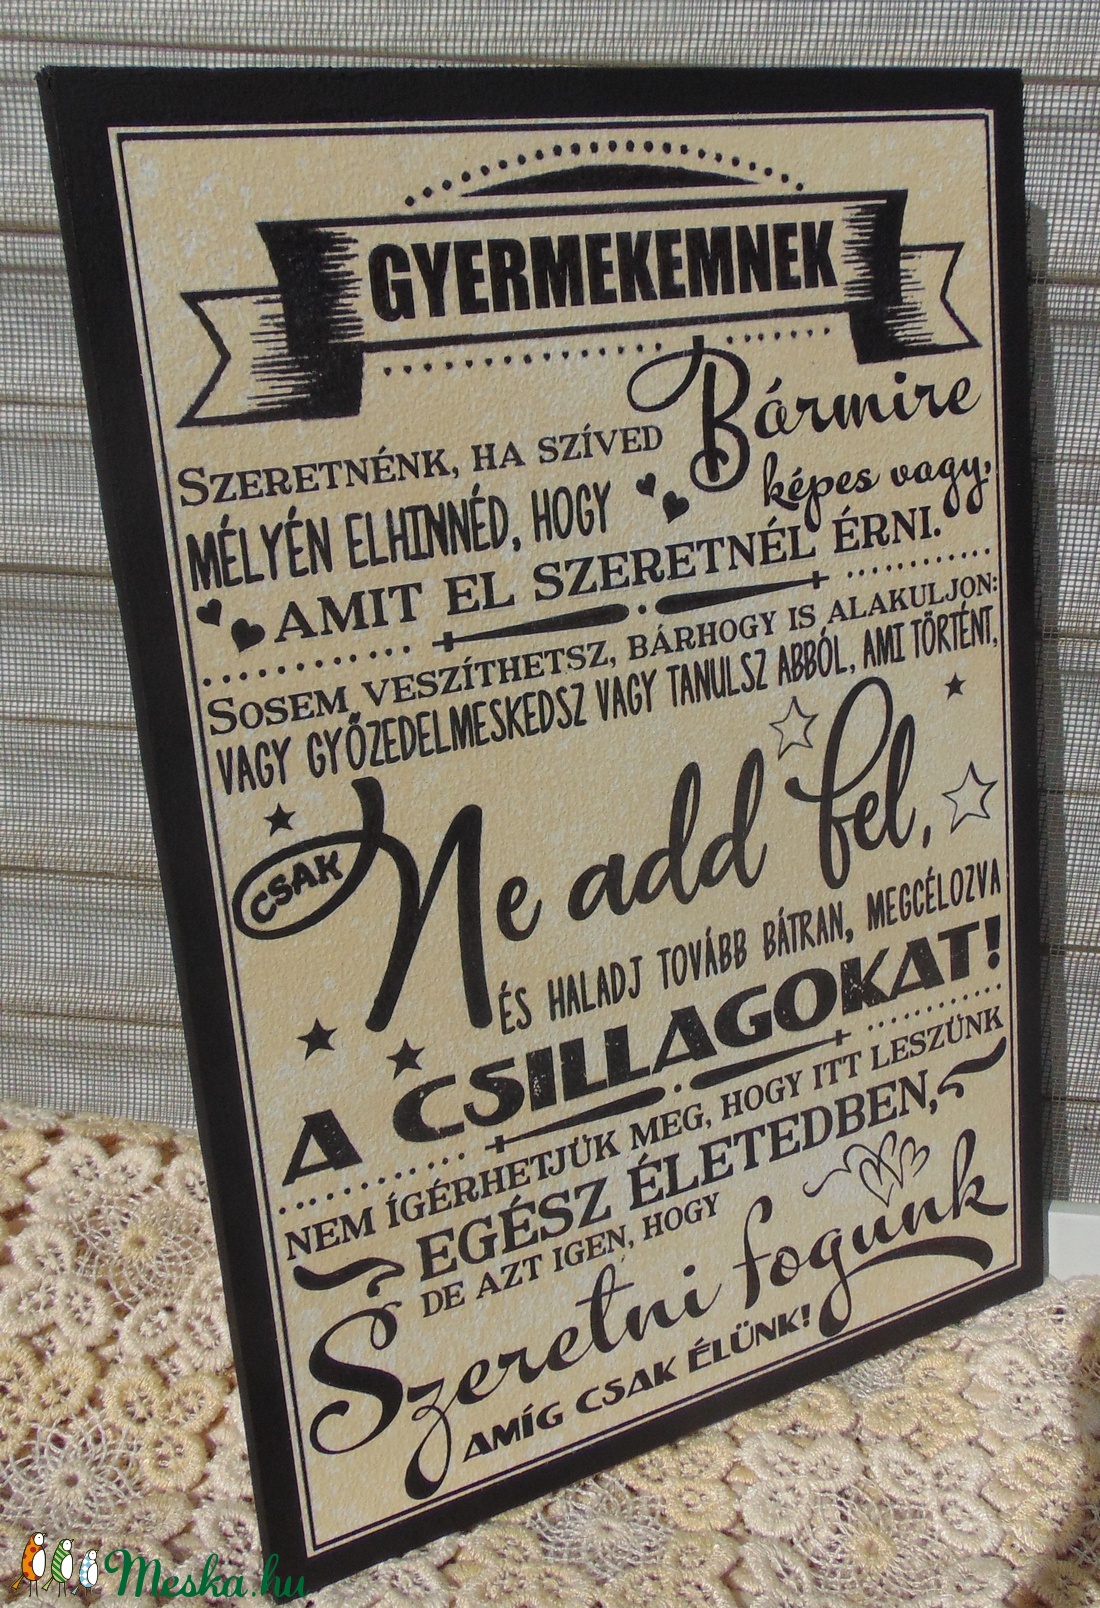 GYERMEKEMNEK
SZERETNÉNK, HA SZÍVED
MÉLYÉN ELHINNÉD, HOGY
Bármire
képes vagy,
AMIT EL SZERETNÉL ÉRNI.
SOSEM VESZÍTHETSZ, BÁRHOGY IS ALAKULJON:
VAGY GYŐZEDELMESKEDSZ VAGY TANULSZ ABBÓL, AMI TÖRTÉNT,
CSAK Ne add fel,
ÉS HALADJ TOVÁBB BÁTRAN, MEGCÉLOZVA
A CSILLAGOKAT!
NEM ÍGÉRHETJÜK MEG, HOGY ITT LESZÜNK
EGÉSZ ÉLETEDBEN,
DE AZT IGEN, HOGY
Szeretni fogunk
AMÍG CSAK ÉLÜNK!
Meska.hu